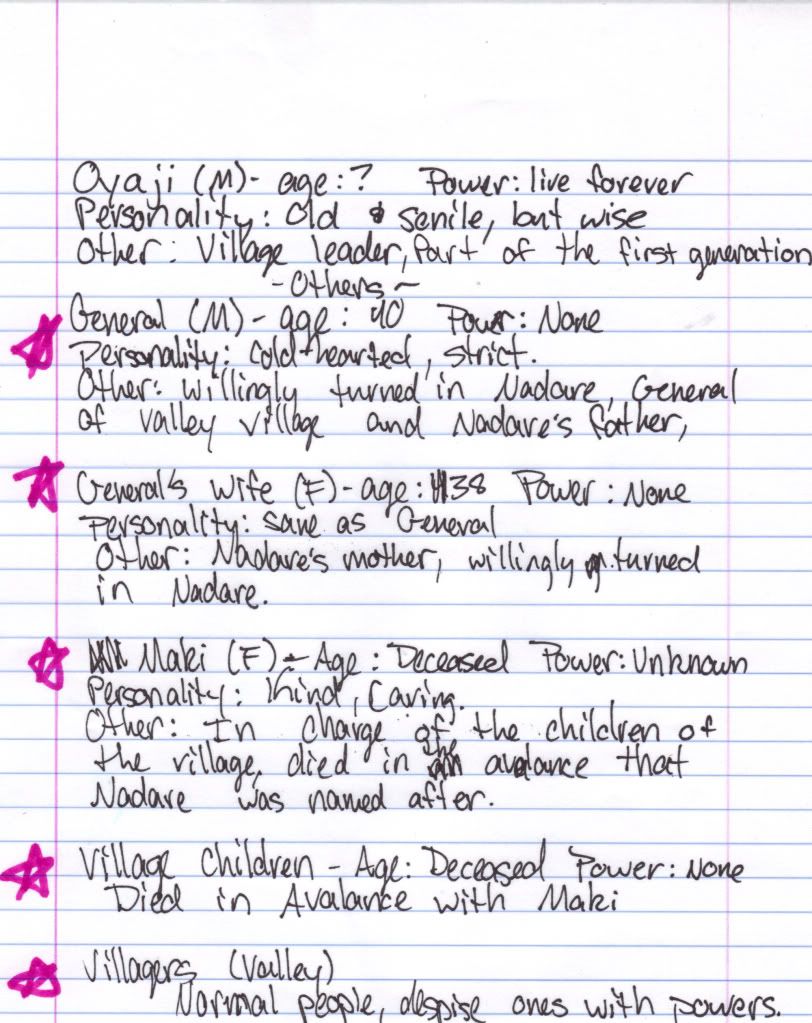 Oyaji (M)- age:? Power: live forever
Personality: Old & senile, but wise
Other: Village leader, Part of the first generation
-Others~
General (M)- age: 40 Power: None
Personality: Cold-hearted, strict.
Other: willingly turned in Nadare, General
of valley village and Nadare's father,
General's wife (F)- age: 38 Power: None
Personality: same as General
Other: Nadare's mother, willingly turned
in Nadare.
Maki (F) - Age: Deceased Power: Unknown
Personality: Kind, Caring.
Other: In charge of the children of
the village, died in the avalance that
Nadare was named after.
Village Children - Age: Deceased Power: None
Died in Avalance with Maki
Villagers (Valley)
Normal people, despise ones with powers.